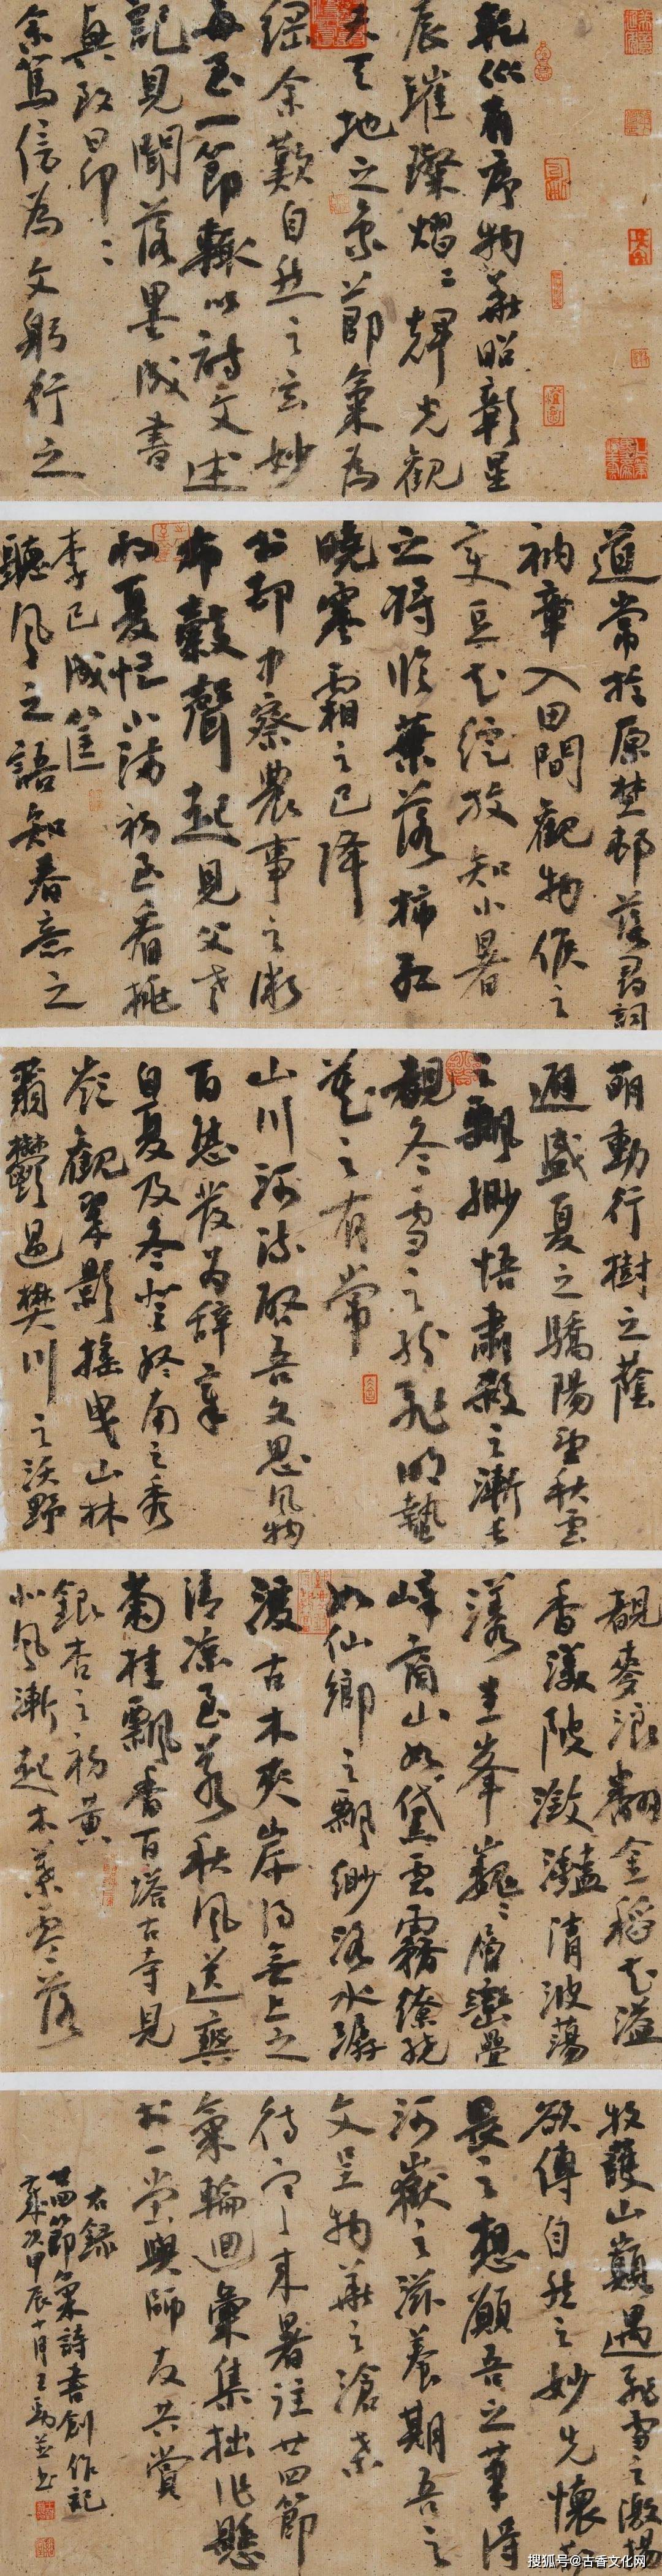 乾坤有序物華昭彰星
辰璀璨熠々輝光觀
天地之象節氣為
綱余歎自然之玄妙
每至一節輒以詩文述
記見聞落墨成書
與政印々
余篤信為文躬行之
道常於原埜邨落尋詞
衲章入田間觀物候之
变豆花綻放知小暑
之將臨葉落柿紅
曉寒霜之已降
於郊中察農事之漸
布穀聲起見父老
夏忙小滿初至看桃
李已成筐
聽風之語知春意之
萌動行樹之蔭
避盛夏之驕陽望秋雲
之飄渺悟肅殺之漸長
觀冬雪之紛飛明蟄
藏之有常
山川河流啓吾文思風物
百態發為辞章
自夏及冬登終南之秀
巔觀翠影搖曳山林
蓊鬱過樊川之沃野
觀麥浪翻金稻花溢
香漾陂瀲灩清波蕩
漾圭峯巍々層巒疊
嶂商山如黛雲霧繚繞
如仙鄉之飄緲洛水潺
湲古木夾岸得無上之
清涼至若秋風送爽
菊桂飄香百塔古寺見
銀杏之初黃
北風漸起木葉零落
牧護山巔遇飛雪之激揚
欲傳自然之妙先懷
畏之想願吾之筆得
河嶽之滋養期吾之
文呈物華之滄桑
待寒來暑往廿四節
氣輪迴彙集拙作懸
於一堂與師友共賞
右錄
廿四節氣詩書創作記
歲次甲辰十月王勇並書
搜狐号@古香文化网